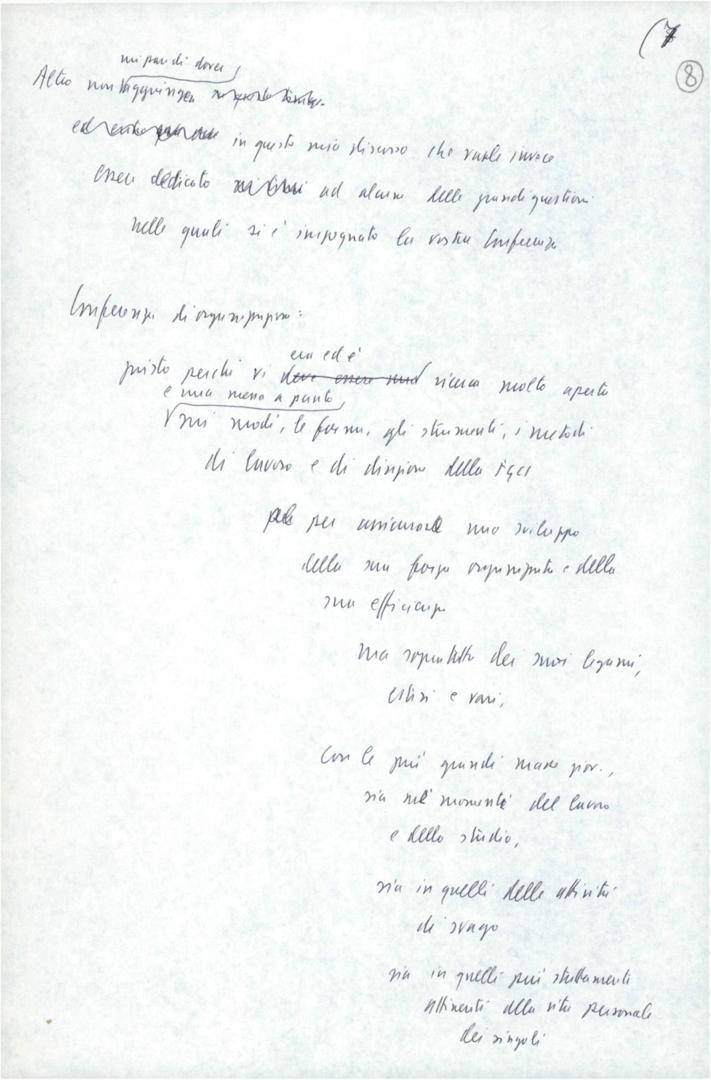 (7
8
mi par di dover
Altro non aggiungere
in questo mio discorso che vuole invece
essere dedicato ad alcune delle grandi questioni
nelle quali si è impegnato la vostra Conferenza
Conferenza di organizzazione:
era ed è
giusto perché vi deve essere una ricerca molto aperta
e una messa a punto
sui modi, le forme, gli strumenti, i metodi
di lavoro e di direzione della FGCI
per assicurare uno sviluppo
della sua forza organizzata e della
sua efficienza
ma soprattutto dei suoi legami,
estesi e vari,
con le più grandi masse giov.,
sia nei momenti del lavoro
e dello studio,
sia in quelli delle attività
di svago
sia in quelli più strettamente
attinenti alla vita personale
dei singoli